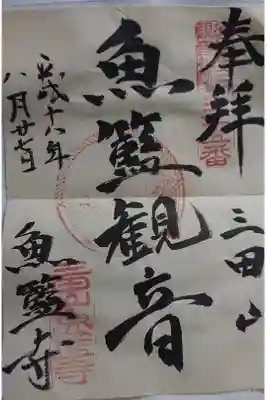 奉拝
三田山
魚籃観音
平成十八年
八月廿七日
魚籃寺